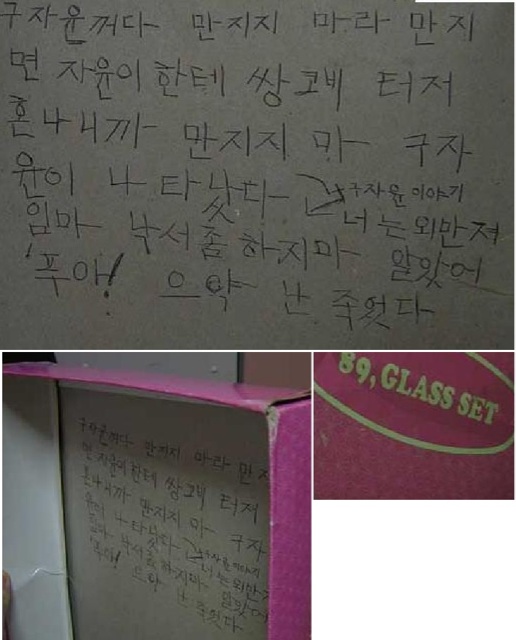 구자윤꺼다 만지지 마라 만지
면 자윤이한테 쌍코비 터저
혼나니까 만지지 마 구자
윤이 나 타낫다 구자윤이야기
너는외만져
임마 낙서좀하지마 알앗어
푸아! 으악 난 죽었다
구자윤꺼다 만지지 마라 만지
면 자윤이한테 쌍코비 터저
혼나니까 만지지 마 구자
윤이 나타낫다 구자윤이야기
너는외만져
임마 낙서좀하지마 알앗어
푸아! 으악 난 죽었다
89, GLASS SET